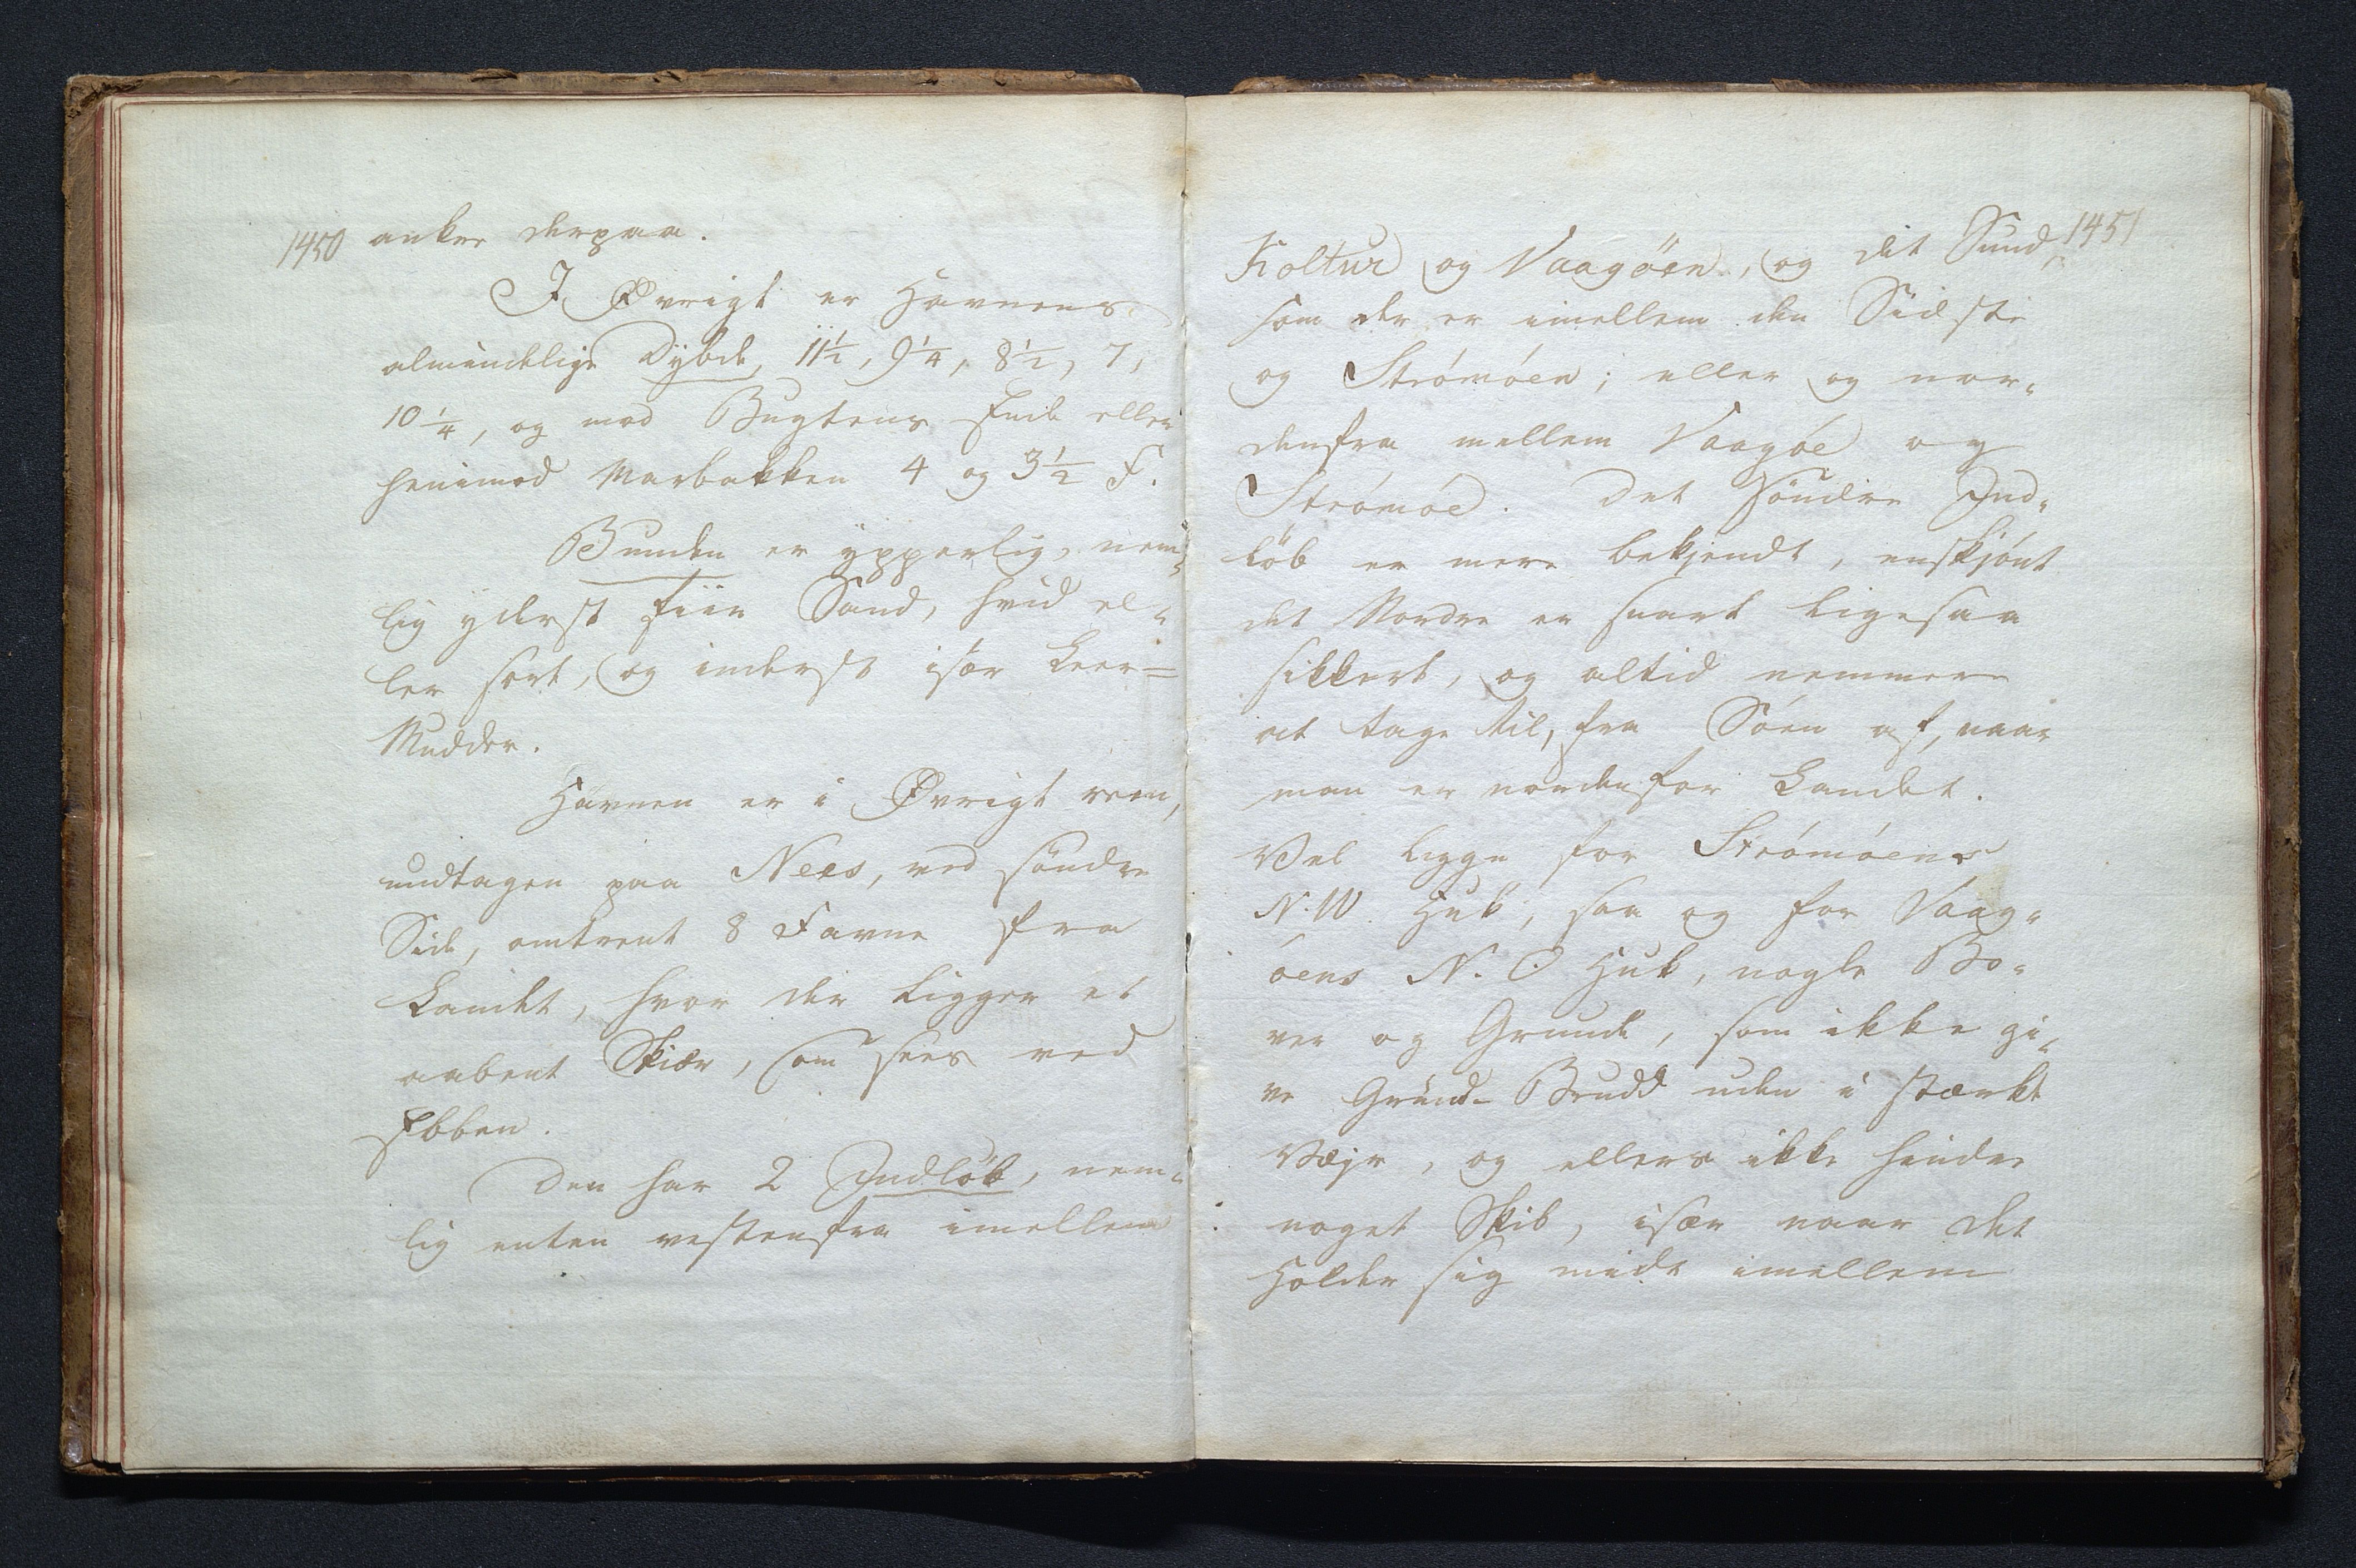 1450 anker derpaa.
I Øvrigt er Havnens
almindelige Dybde, 11½, 9¼, 8½, 7,
10¼, og mod Bugtens Ende eller
henimod Marbakken 4 og 3½ F.
Bunden er ypperlig, nem-
lig yderst fiin Sand, hvid el-
ler sort, og inderst især Leer=
Mudder.
Havnen er i Øvrigt reen,
undtagen paa Nees, ved søndre
Side, omtrent 8 Favne fra
Landet, hvor der ligger et
aabent Skiær, som sees ved
Ebben.
Den har 2 Indløb, nem-
lig enten vestenfra imellem
1451
Koltur og Vaagöen, og det Sund,
som der er imellem den Sidste
og Strömöen; eller og nor-
denfra mellem Vaagöe og
Strömöe. Det Söndre Ind-
löb er mere bekjendt, enskjönt
det Nordre er snart ligesaa
sikkert, og altid nemmere
at tage til, fra Söen af, naar
man er nordenfor Landet.
Vel ligge for Strömöens
N.W. Huk, saa og for Vaag-
öens N.O Huk, nogle Bo-
ver og Grunde, som ikke gi-
ve Grund-Brudd uden i stærkt
Vejr, og ellers ikke hindre
noget Skib, især naar det
holder sig midt imellem